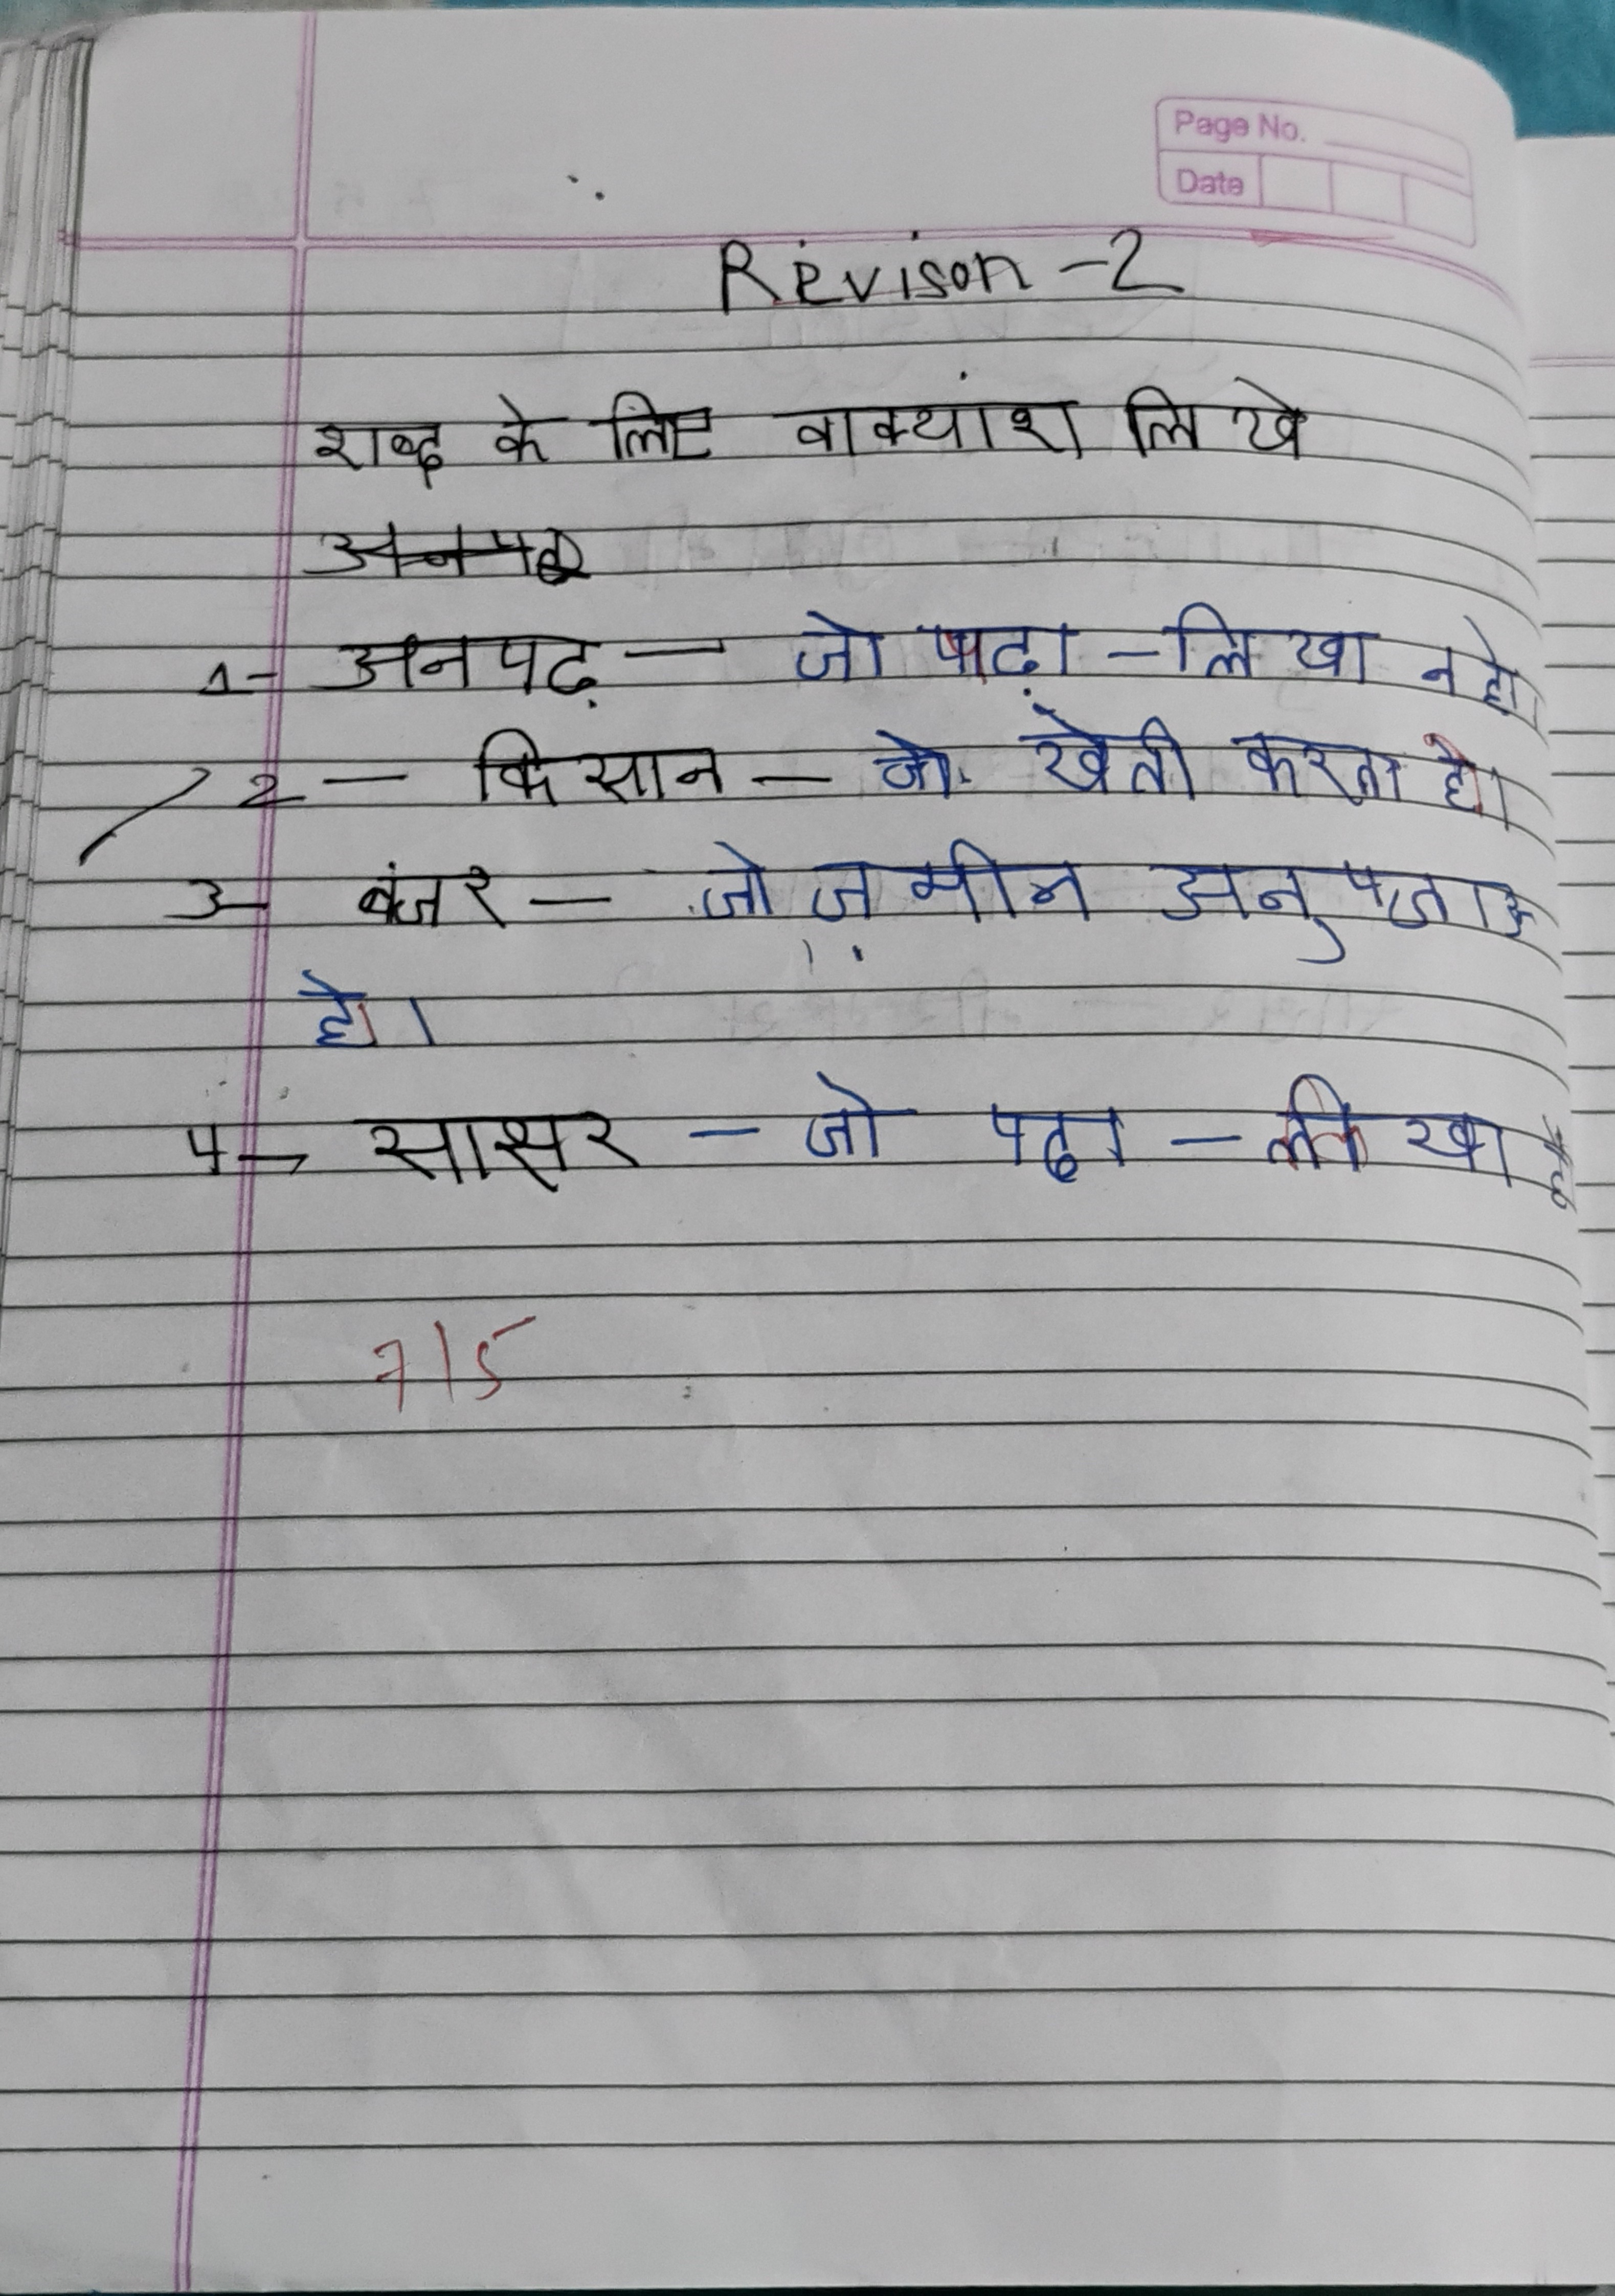 Page No.
Date
Revison -2
शब्द के लिए वाक्यांश लिखे
1- अनपढ़ — जो पढ़ा - लिखा न हो
2 — किसान — जो खेती करता हो।
3- बंजर — जो ज़मीन अनुपजाऊ
हो।
4- साक्षर - जो पढ़ा - लिखा
7/5